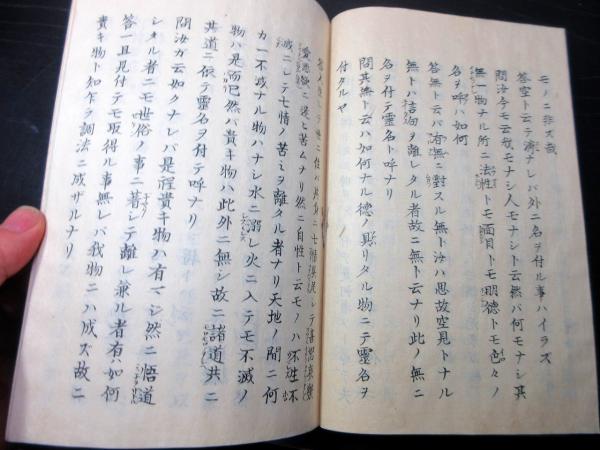 モノニ非ズ哉
答空ト云テ濟ナレバ外ニ名ヲ付ル事ハイラズ
問汝今モ云哉モナシ人モナシト云然バ何モナシ其
無一物ナル所ニ法性トモ面目トモ明德トモ色々ノ
名ヲ呼ハ如何
答無ト云バ有無ニ對スル無ト汝ハ思故空見トナル
無トハ ヲ離レタル者故ニ無ト云ナリ此ノ無ニ
名ヲ付テ靈名ト呼ナリ
問其無ト云ハ如何ナル德ノ具リタル物ニテ靈名ヲ
付タルヤ
答人 世ニ住バ外身ニ七情 シテ喜怒哀樂
愛惡 ニ迷ヒ苦ムナリ然ニ自性ト云モノハ不生不
滅ニシテ七情ノ苦ミヲ離タル者ナリ天地ノ間ニ何
カ一不滅ナル物ハナシ水ニ溺レ火ニ入テモ不滅ノ
物ハ是而已然バ貴キ物ハ此外ニ無シ故ニ諸道共ニ
其道ニ依テ靈名ヲ付テ呼ナリ
問汝ガ云如クナレバ是程貴キ物ハ有マシ然ニ悟道
シタル者ニモ世俗ノ事ニ著シテ離レ兼ル者有ハ如何
答一旦見付テモ取得ル事無レバ我物ニハ成ズ故ニ
貴キ物ト知乍ラ調法ニ成ザルナリ